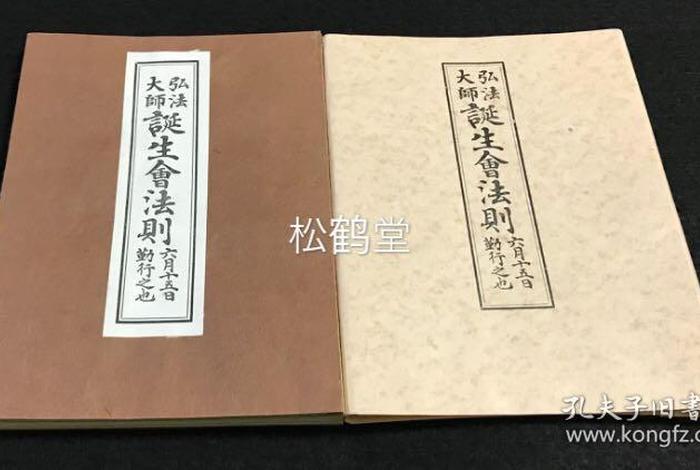 弘法
大師
誕生會法則
六月十五日
勤行之也
弘法
大師
誕生會法則
六月十五日
勤行之也
松鹤堂
孔夫子旧書
www.kongfz.com